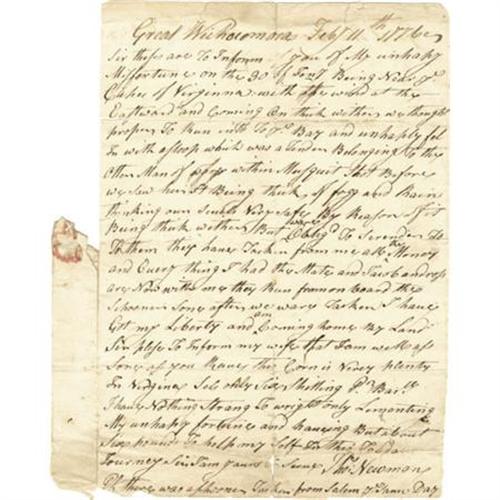 Great Wichocomoca Feby 11th 1776
Sir thess are To Inform you of My unhapy
Misfortune on the 30 of Being Near ye
Capes of Virginia with the wind at the
Eastward and Coming On thick wether we thought
proper To Run into To ye Bay and unhapily fel
In with a sloop which was a Tender Belonging To the
Otter Man of within Musquit Shot Before
we saw her It Being thick of fogg and Rain
thinking our Very Safe By Reason of it
Being thick wether But was Oblig'd To Serender To
To them they have Tacken from me all the Money
and Every thing I had the Mate and four
are Now with me they Run from on board the
Schooner Sone after we ware Tacken I have
Got my Liberty and am Coming home By Land
Sir plese To Inform my wife that I am well as
Sone as you have this Corn is Very plenty
in Virginea Sels only Six Shilling Pr Barl
I have Nothing Strang To wright only Lementing
My unhapy fortune and haveing But about
Six pounds To help my Self In this
Journey Sir I am yours to Serve Thos Newman
PS there was a Schooner Tacken from Salem ye Day